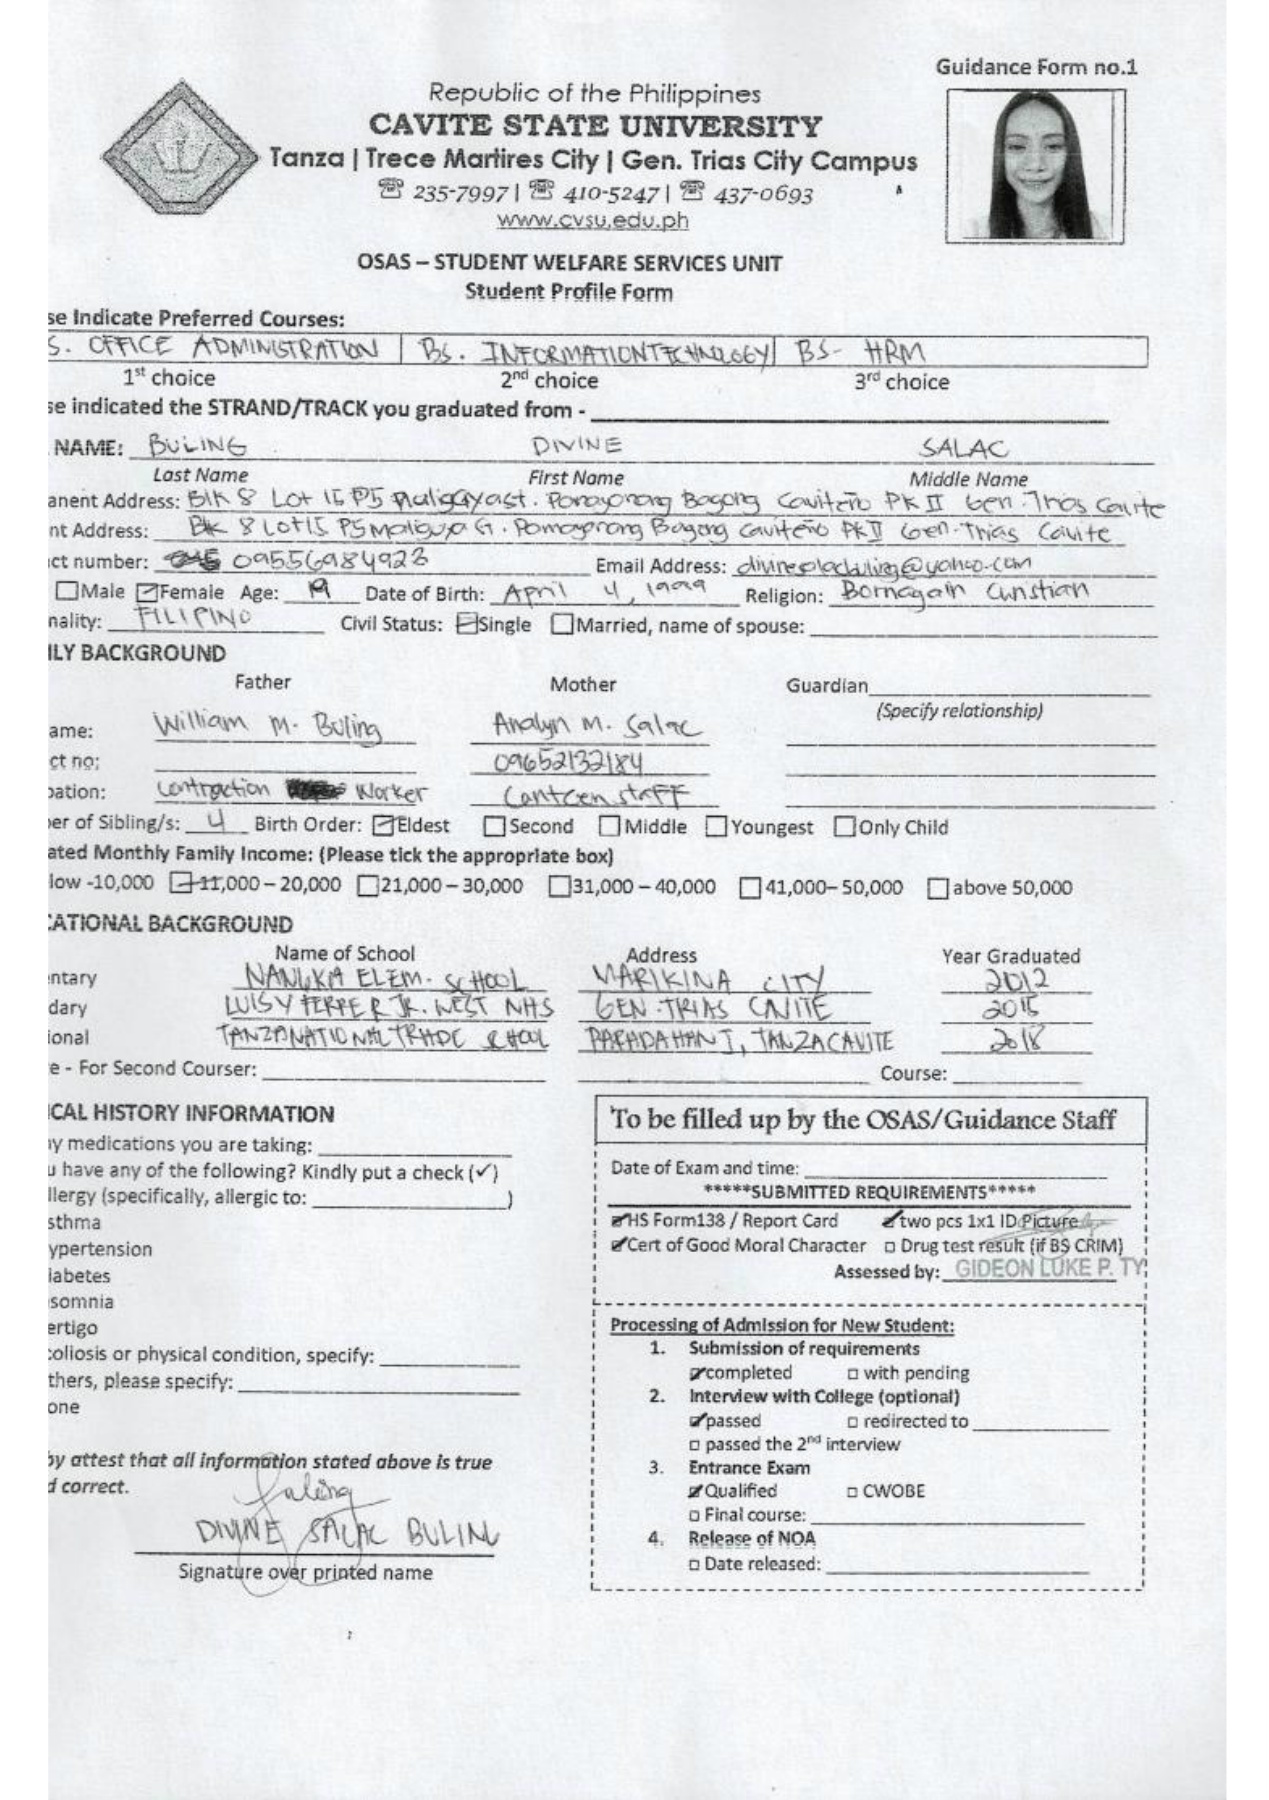 Guidance Form no.1
Republic of the Philippines
CAVITE STATE UNIVERSITY
Tanza | Trece Martires City | Gen. Trias City Campus
☏ 235-7997 | ☏ 410-5247 | ☏ 437-0693
www.cvsu.edu.ph
OSAS – STUDENT WELFARE SERVICES UNIT
Student Profile Form
se Indicate Preferred Courses:
S. OFFICE ADMINISTRATION | BS. INFORMATIONTECHNOLOGY | BS- HRM
1st choice 2nd choice 3rd choice
se indicated the STRAND/TRACK you graduated from -
NAME: BULING DIVINE SALAC
Last Name First Name Middle Name
anent Address: Blk 8 Lot 15 P5 Bagong Caviteño PK II Gen. Trias Cavite
nt Address: Blk 8 Lot15 P5 Bagong Caviteño PK II Gen. Trias Cavite
ct number: 09556984923 Email Address: divinesalacbuling@yahoo.com
☐Male ☑Female Age: 19 Date of Birth: April 4, 1999 Religion: Bornagain Christian
nality: FILIPINO Civil Status: ☑Single ☐Married, name of spouse:
ILY BACKGROUND
Father Mother Guardian
(Specify relationship)
ame: William M. Buling Analyn M. Salac
ct no: 09652132184
pation: Contraction Worker Canteen staff
er of Sibling/s: 4 Birth Order: ☑Eldest ☐Second ☐Middle ☐Youngest ☐Only Child
ated Monthly Family Income: (Please tick the appropriate box)
low -10,000 ☑11,000 – 20,000 ☐21,000 – 30,000 ☐31,000 – 40,000 ☐41,000– 50,000 ☐above 50,000
CATIONAL BACKGROUND
Name of School Address Year Graduated
ntary NANGKA ELEM. SCHOOL MARIKINA CITY 2012
dary LUIS Y FERRER JR. WEST NHS GEN. TRIAS CAVITE
ional TANZA NATIONAL TRADE SCHOOL PARADAHAN I, TANZA CAVITE 2018
e - For Second Courser: Course:
ICAL HISTORY INFORMATION
y medications you are taking:
u have any of the following? Kindly put a check (✓)
llergy (specifically, allergic to: )
sthma
ypertension
iabetes
somnia
ertigo
coliosis or physical condition, specify:
thers, please specify:
one
by attest that all information stated above is true
d correct.
DIVINE SALAC BULING
Signature over printed name
To be filled up by the OSAS/Guidance Staff
Date of Exam and time:
*****SUBMITTED REQUIREMENTS*****
☑HS Form138 / Report Card ☑two pcs 1x1 ID Picture
☑Cert of Good Moral Character ☐ Drug test result (if BS CRIM)
Assessed by: GIDEON LUKE P. TY
Processing of Admission for New Student:
1. Submission of requirements
☑completed ☐ with pending
2. Interview with College (optional)
☑passed ☐ redirected to
☐ passed the 2nd interview
3. Entrance Exam
☑Qualified ☐ CWOBE
☐ Final course:
4. Release of NOA
☐ Date released: